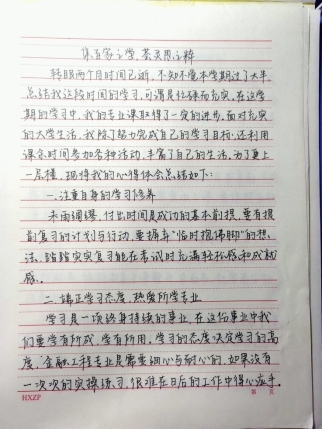 集百家之学,荟灵思之粹
转眼两个月时间已逝,不知不觉本学期过了大半,
总结我这段时间的学习,可谓是忙碌而充实,在这学
期的学习中,我的专业课取得了一定的进步,面对充实
的大学生活,我除了努力完成自己的学习目标,还利用
课余时间参加各种活动,丰富了自己的生活,为了更上
一层楼,现将我的心得体会总结如下:
一.注重自身的学习修养
未雨绸缪,付出时间是成功的基本前提,要有提
前复习的计划与行动,要摒弃"临时抱佛脚"的想
法,踏踏实实复习能在考试时充满轻松感和成就
感。
二.端正学习态度,热爱所学专业
学习是一项终身持续的事业,在这份事业中我
们要学有所成,学有所用,学习的态度决定学习的高
度,金融工程专业是需要细心与耐心的,如果没有
一次次的实操练习,很难在日后的工作中得心应手。
HXZP 第 页